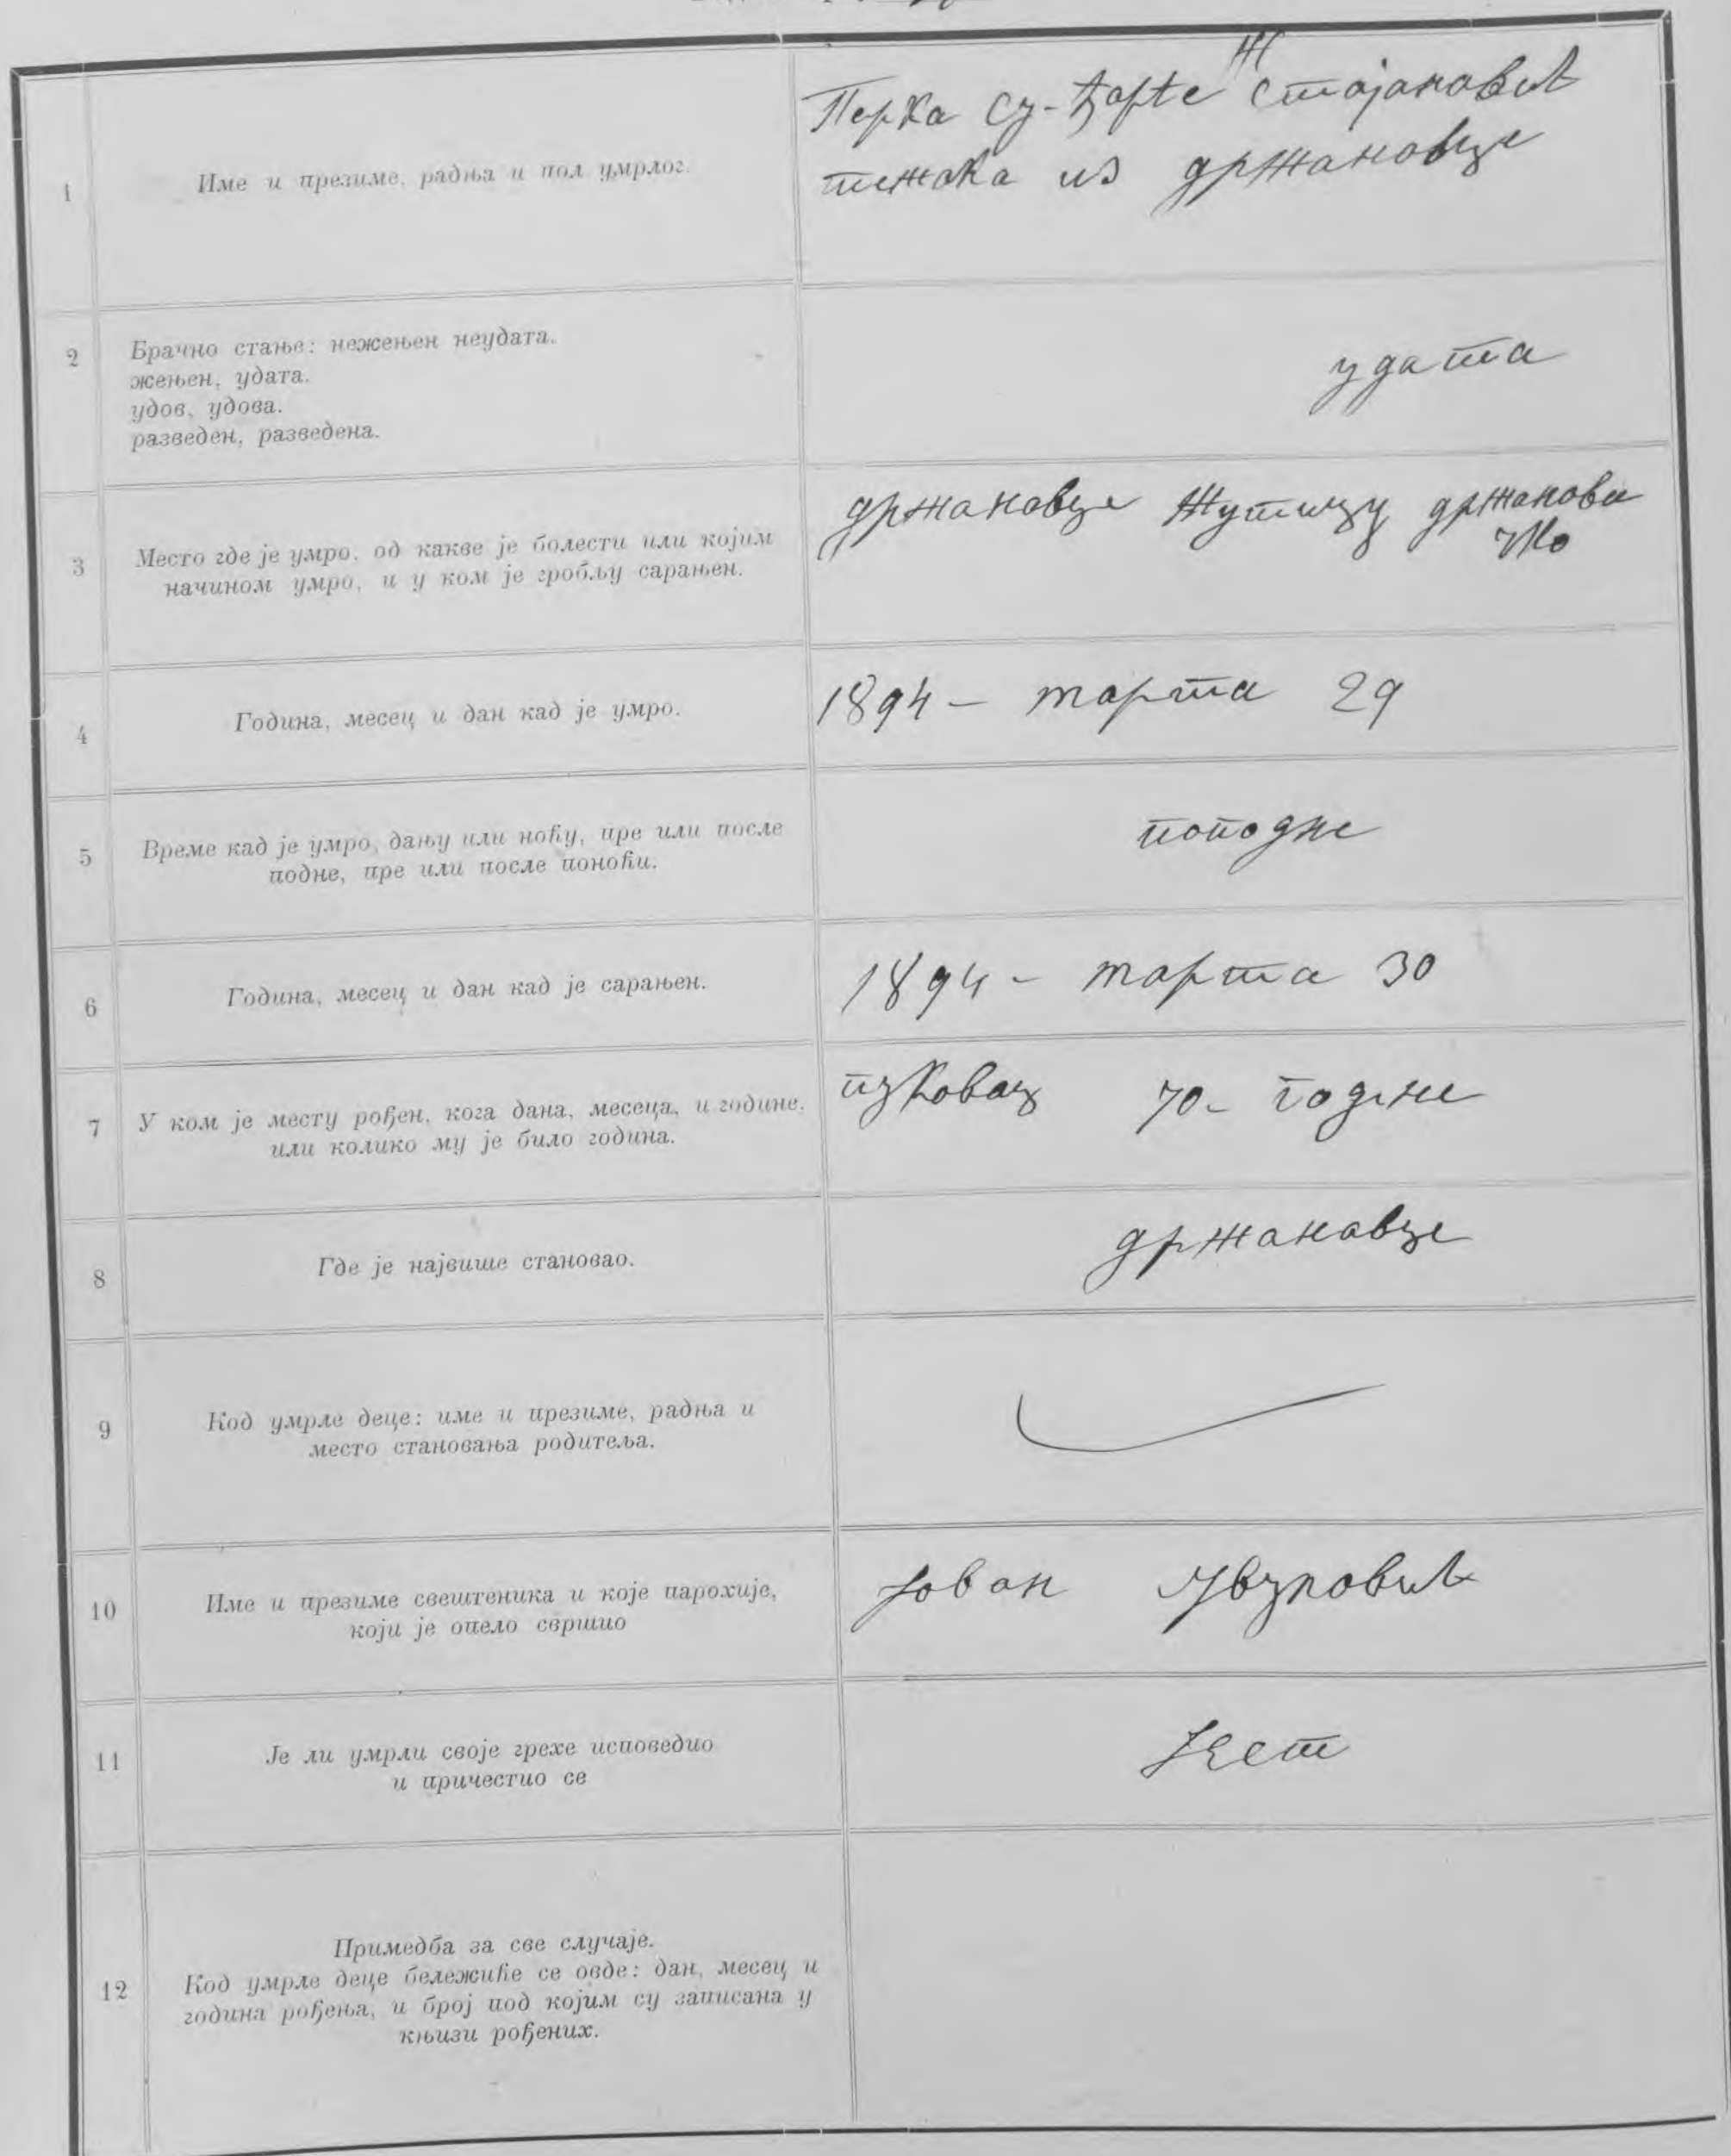 1
Име и презиме, радња и пол умрлог.
Перка су-Ђорђе Стојановић
Ж
тежака из држановце
2
Брачно стање: нежењен неудата.
жењен, удата.
удов, удова.
разведен, разведена.
удата
3
Место где је умро, од какве је болести или којим
начином умро, и у ком је гробљу сарањен.
држановце Жутицу држанова
чко
4
Година, месец и дан кад је умро.
1894 – марта 29
5
Време кад је умро, дању или ноћу, пре или после
подне, пре или после поноћи.
поподне
6
Година, месец и дан кад је сарањен.
1894 – марта 30
7
У ком је месту рођен, кога дана, месеца, и године,
или колико му је било година.
70 - године
8
Где је највише становао.
држановце
9
Код умрле деце: име и презиме, радња и
место становања родитеља.
10
Име и презиме свештеника и које парохије,
који је опело свршио
Јован
11
Је ли умрли своје грехе исповедио
и причестио се
Јест
12
Примедба за све случаје.
Код умрле деце бележиће се овде: дан, месец и
година рођења, и број под којим су записана у
књизи рођених.